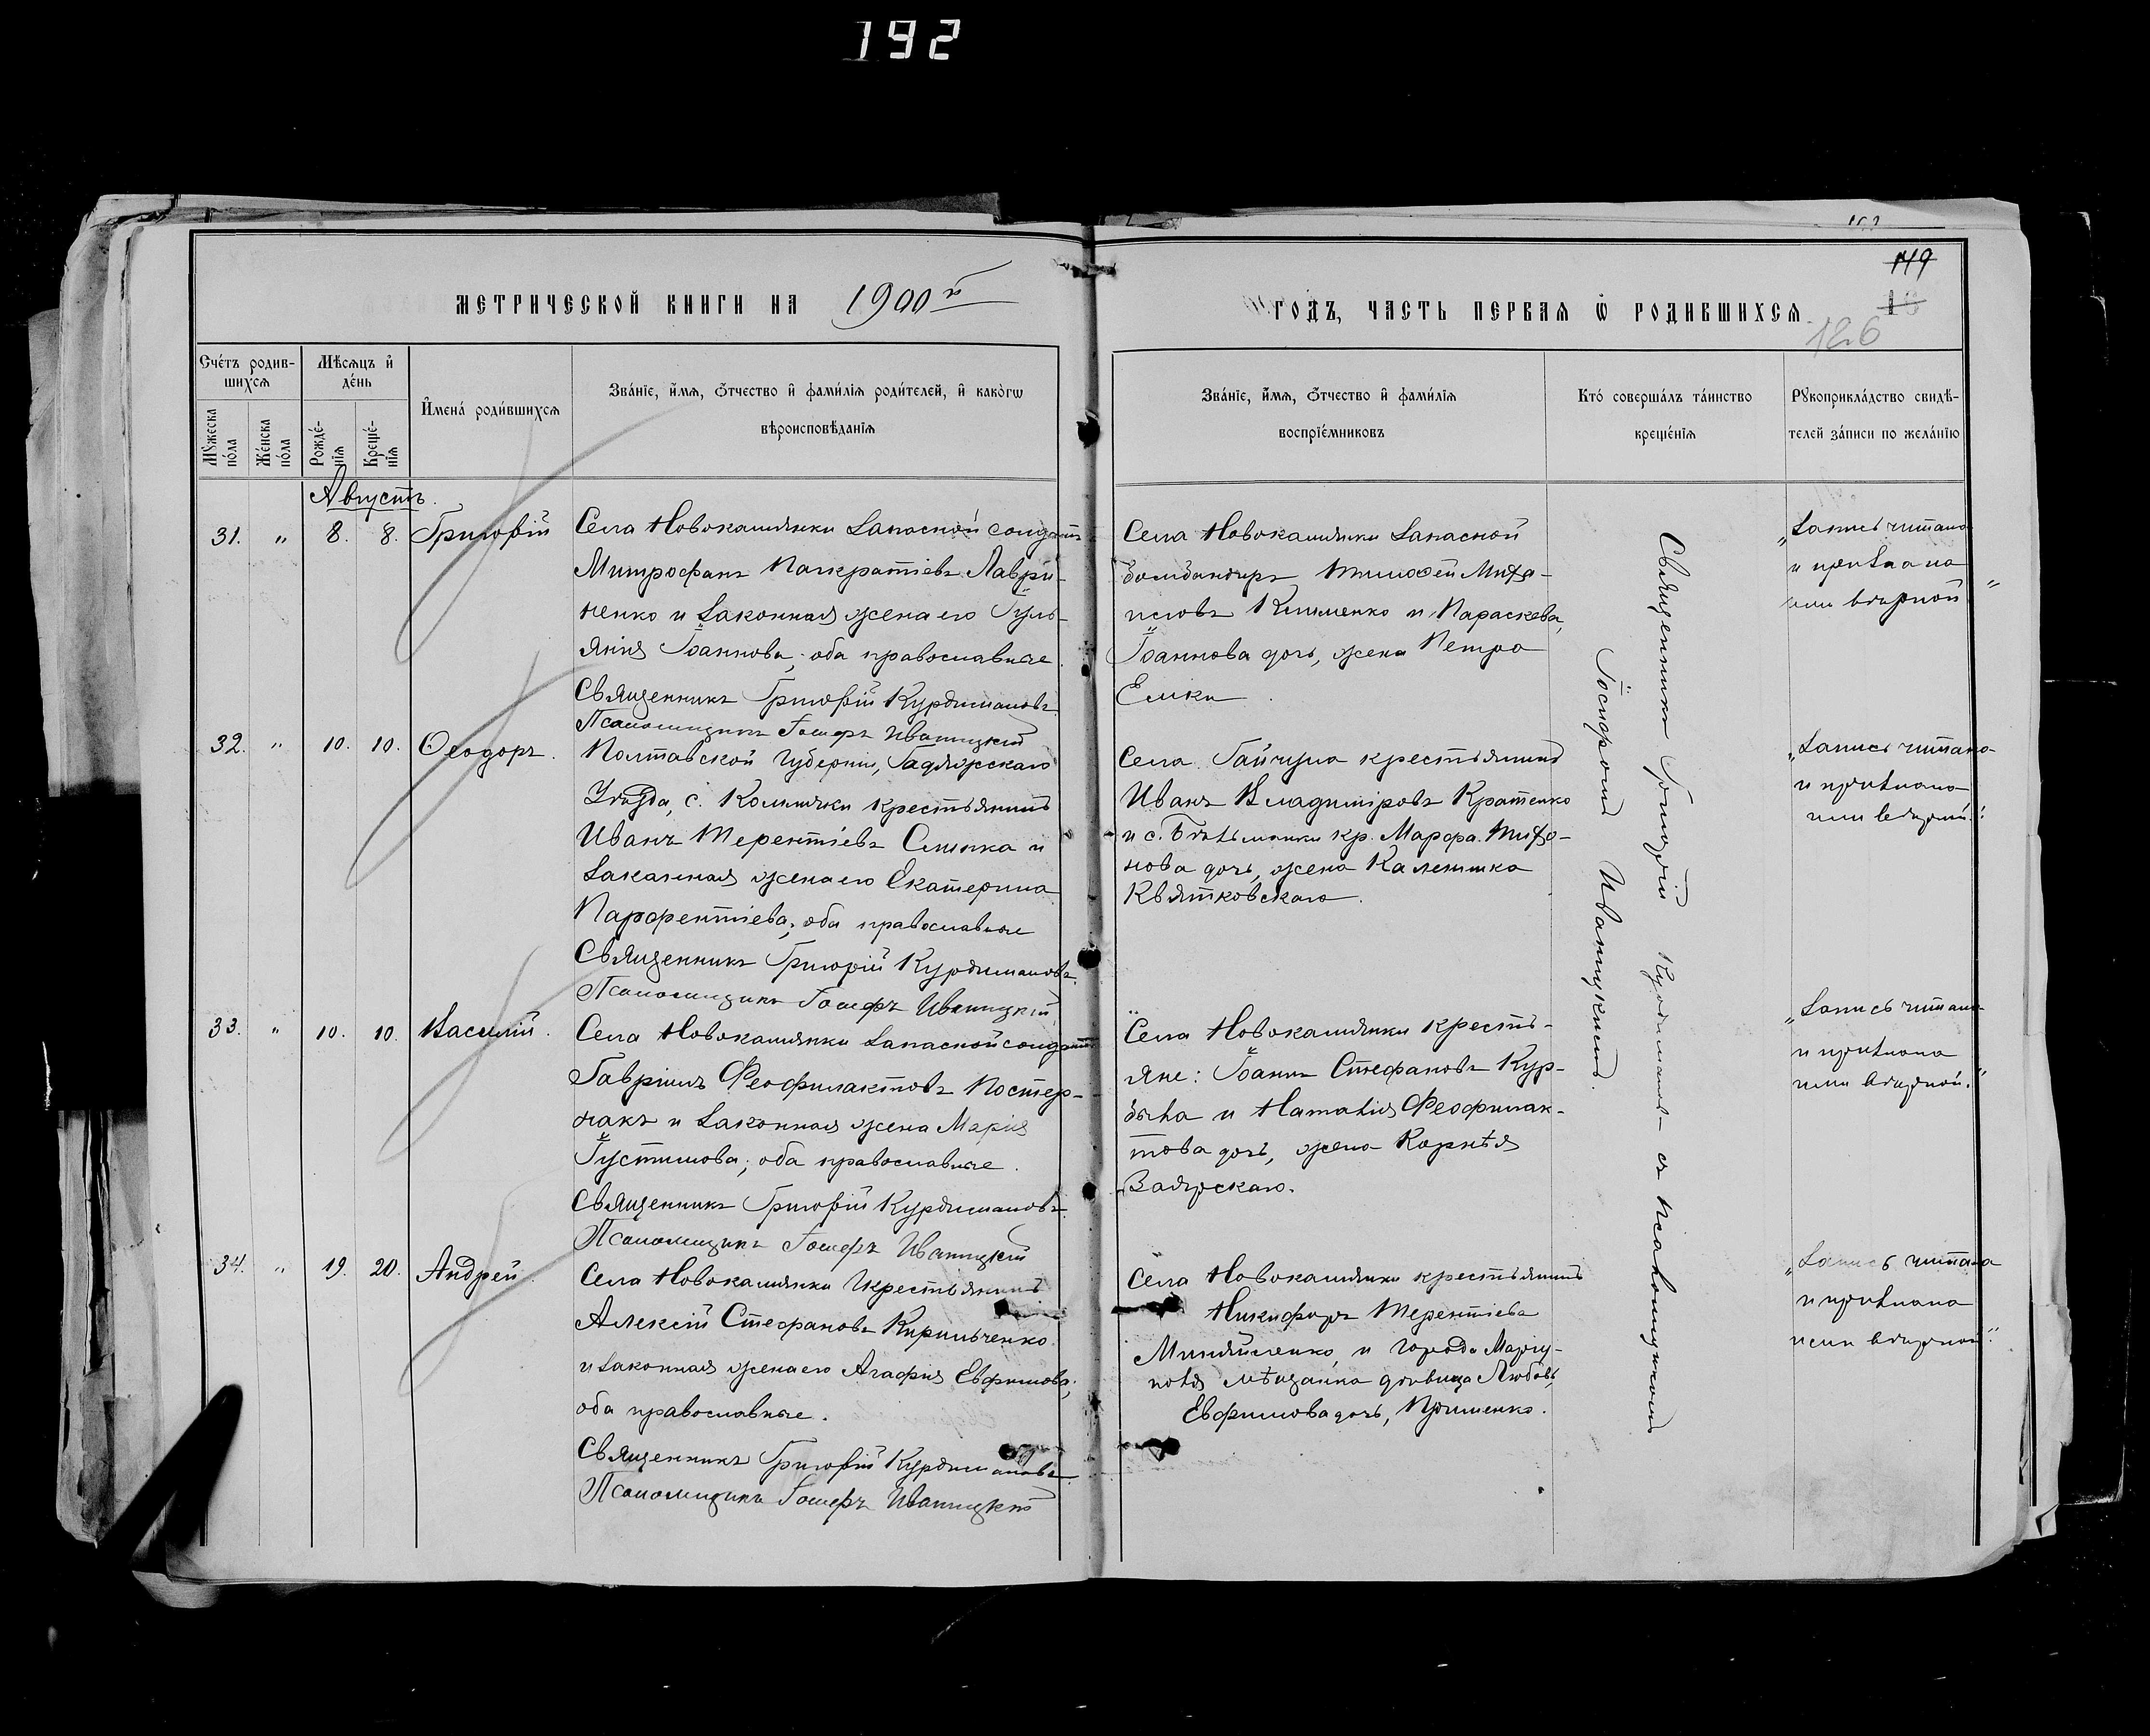 192
149
126
МЕТРИЧЕСКОЙ КНИГИ НА 1900й ГОДЪ, ЧАСТЬ ПЕРВАЯ Ѡ РОДИВШИХСЯ.
Сче́тъ родив-
шихся
Мѣсяцъ и҆
де́нь
Мꙋ́жеска
по́ла
Же́нска
по́ла
Рожде́-
нїя
Креще́-
нїя
И҆мена̀ роди́вшихся
Зва́нїе, и҆́мя, ѻ҆́тчество и҆ фами́лїя роди́телей, и҆ како́гѡ
вѣроисповѣ́данїя
Зва́нїе, и҆́мя, ѻ҆́тчество и҆ фами́лїя
воспрїе́мниковъ
Кто̀ соверша́лъ та́инство
креще́нїя
Рꙋкоприкла́дство свидѣ́-
телей за́писи по жела́нїю
Августъ.
31. " 8. 8. Григорій
Села Новокамянки Запасной солдатъ
Митрофанъ Панкратіевъ Лаври-
ненко и законная жена его Іуль-
янія Іоаннова; оба православные.
Священникъ Григорій Курдимановъ
Псаломщикъ Іосифъ Иваницкій
Села Новокамянки Запасной
бомбандиръ Тимоѳей Миха-
иловъ Клименко и Параскева,
Іоаннова дочь, жена Петра
Елики.
"Запись читана
и признана
ими вѣрной."
32. " 10. 10. Ѳеодоръ.
Полтавской Губерніи, Гадяжскаго
Уѣзда, с. крестьянинъ
Иванъ Терентіевъ Слипка и
законная жена его Екатерина
Парфентіева; оба православные
Священникъ Григорій Курдимановъ.
Псаломщикъ Іосифъ Иваницкій
Села Гайчула крестьянинъ
Иванъ Владиміровъ Кратенко
и с. кр. Марфа Тихо-
нова дочь, жена Калиника
Квятковскаго.
"Запись читана
и признана
ими вѣрной."
33. " 10. 10. Василій.
Села Новокамянки Запасной солдатъ
Гавріилъ Феофилактовъ Постер-
накъ и законная жена Марія
Іустинова; оба православные.
Священникъ Григорій Курдимановъ.
Псаломщикъ Іосифъ Иваницкій
Села Новокамянки кресть-
яне: Іоаннъ Стефановъ Кур-
быза и Наталія Феофилак-
това дочь, жена Корнѣя
"Запись читана
и признана
ими вѣрной."
34. " 19. 20. Андрей.
Села Новокамянки крестьянинъ
Алексій Стефановъ Кирильченко
и законная жена его Агафія Евфимова;
оба православные.
Священникъ Григорій Курдимановъ
Псаломщикъ Іосифъ Иваницкій
Села Новокамянки крестьянинъ
Никифоръ Терентіевъ
и города Маріу-
поля мѣщанка дѣвица Любовь
Евфимова дочь,
"Запись читана
и признана
ими вѣрной."
Священникъ Григорій Курдимановъ съ псаломщикомъ
Іосифомъ Иваницкимъ.